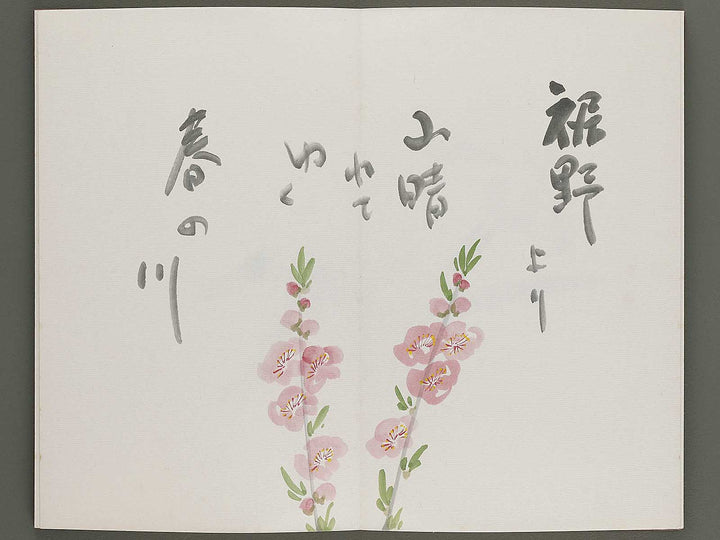 裾野より
山晴れて
ゆく
春の川